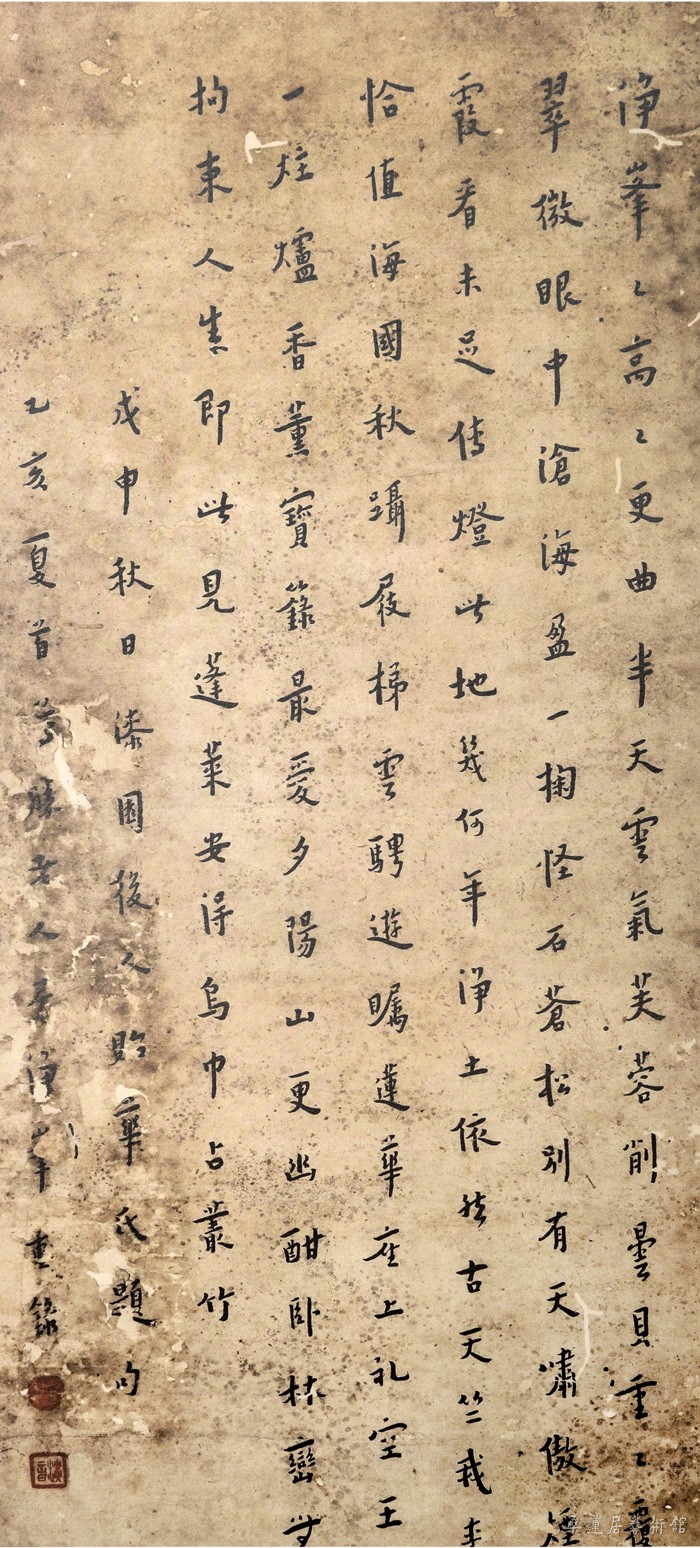 淨峯〻高〻更曲半天雲氣芙蓉削曇貝重〻覆
翠微眼中滄海盈一掬怪石蒼松別有天嘯傲煙
霞看未足傳燈此地幾何年淨土依然古天竺我來
恰值海國秋躡屐梯雲騁遊矚蓮華座上礼空王
一炷爐香薰寶籙最愛夕陽山更幽酣臥林巒無
拘束人生即此見蓬萊安得烏巾占叢竹
戊申秋日漆園後人貽華氏題句
乙亥夏首尊勝老人居淨峯重錄
蓮居藝術館